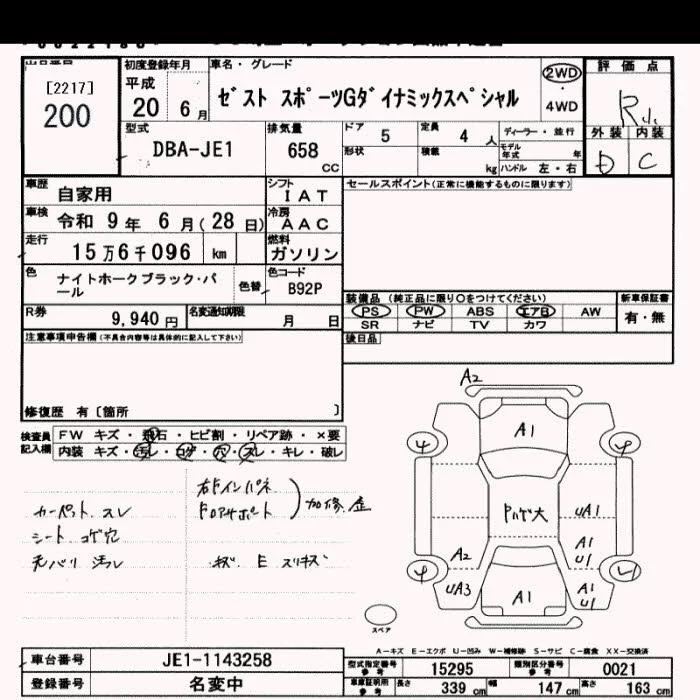 [2217]
200
初度登録年月
平成
20 6月
車名・グレード
ゼスト スポーツGダイナミックスペシャル
2WD
・
4WD
評価点
R
外装 内装
D C
型式
DBA-JE1
排気量
658
CC
ドア 5
定員 4 人
形状
積載 kg
ディーラー・並行
モデル年式 年
ハンドル 左・右
車歴 自家用
シフト
IAT
車検 令和 9年 6月(28日)
冷房
AAC
走行 15万6千096 km
燃料
ガソリン
色 ナイトホークブラック・パール
色替
色コード
B92P
R券 9,940 円
名変通知期限 月 日
セールスポイント(正常に機能するものに限ります)
装備品 (純正品に限り〇をつけてください)
新車保証書
PS PW ABS エアB AW
有・無
SR ナビ TV カワ
後日品
注意事項申告欄(不具合内容等は具体的に記入して下さい)
修復歴 有〔箇所 〕
検査員記入欄
FW キズ・飛石・ヒビ割・リペア跡・×要
内装 キズ・汚レ・コゲ・穴・スレ・キレ・破レ
カーペット スレ
シート コゲ穴
天バリ 汚レ
右ドインパネ
ドロアサポート
加修 歪
キズ E スリキズ
A2
A1
ハゲ大
UA1
A1
U1
A2
UA3
A1
A1
U1
スペア
A－キズ E－エクボ U－凹み W－補修跡 S－サビ C－腐食 XX－交換済
車台番号 JE1-1143258
登録番号 名変中
型式指定番号 参考 15295
類別区分番号 参考 0021
車庫証明用 参考 長さ 339 cm 幅 147 cm 高さ 163 cm